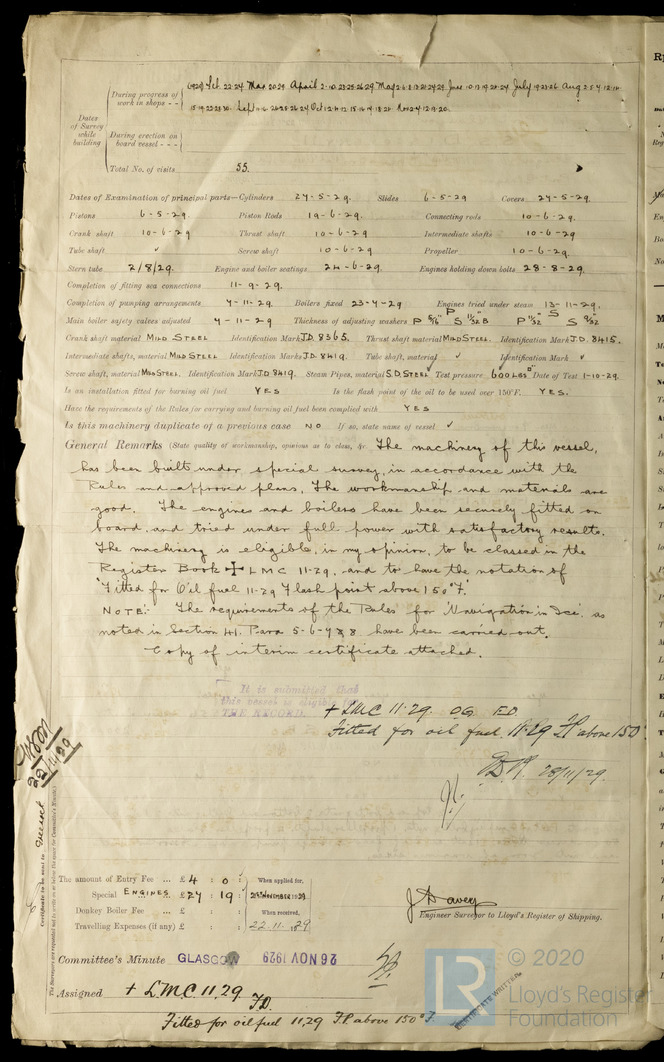 During progress of work in shops - - (1929) Feb 22.24 Mar 20.29 April 2.10.23.25.26.29 May 2.6.8.13.21.24.29 June 10.13.19.20.24 July 19.23.26 Aug 2.5.7.12.14
15.19.22.28.30. Sept
Dates of Survey while building
During erection on board vessel - - -
Total No. of visits 55.
Dates of Examination of principal parts—Cylinders 24-5-29. Slides 6-5-29 Covers 24-5-29.
Pistons 6-5-29. Piston Rods 19-6-29. Connecting rods 10-6-29.
Crank shaft 10-6-29 Thrust shaft 10-6-29 Intermediate shafts 10-6-29
Tube shaft ✓ Screw shaft 10-6-29 Propeller 10-6-29.
Stern tube 2/8/29. Engine and boiler seatings 24-6-29. Engines holding down bolts 28-8-29.
Completion of fitting sea connections 11-9-29.
Completion of pumping arrangements 4-11-29. Boilers fixed 23-9-29 Engines tried under steam 13-11-29.
Main boiler safety valves adjusted 4-11-29 Thickness of adjusting washers P 5/16" S 11/32 B P 11/32 S S 9/32
Crank shaft material MILD STEEL Identification Mark J.D. 8365. Thrust shaft material MILD STEEL. Identification Mark J.D. 8415.
Intermediate shafts, material MILD STEEL Identification Marks J.D. 8419. Tube shaft, material ✓ Identification Mark ✓
Screw shaft, material MILD STEEL. Identification Mark J.D 8419. Steam Pipes, material S.D. STEEL Test pressure 600 LBS □" Date of Test 1-10-29.
Is an installation fitted for burning oil fuel YES Is the flash point of the oil to be used over 150°F. YES.
Have the requirements of the Rules for carrying and burning oil fuel been complied with YES
Is this machinery duplicate of a previous case NO. If so, state name of vessel ✓
General Remarks (State quality of workmanship, opinions as to class, &c. The machinery of this vessel,
has been built under special survey, in accordance with the
Rules and approved plans. The workmanship and materials are
good. The engines and boilers have been securely fitted on
board, and tried under full power with satisfactory results.
The machinery is eligible, in my opinion, to be classed in the
Register Book ✠ LMC 11-29, and to have the notation of
"Fitted for Oil fuel 11-29 Flash point above 150°F."
NOTE:- The requirements of the Rules for 'Navigation in Ice', as
noted in Section 41. Para 5-6-7 & 8 have been carried out.
Copy of interim certificate attached.
It is submitted that
this vessel is eligible
THE RECORD. + LMC 11.29. OG FD.
Fitted for oil fuel 11.29 FP above 150
28/11/29.
22/11/29
Certificate to be sent to Greenock
The Surveyors are requested not to write on or below the space for Committee's Minute.
The amount of Entry Fee ... £ 4 : 0 : When applied for,
Special ENGINES ... £ 24 : 19 : 21st NOVEMBER 1929
Donkey Boiler Fee ... £ : : When received,
Travelling Expenses (if any) £ : : 22.11.29
J Davey
Engineer Surveyor to Lloyd's Register of Shipping.
Committee's Minute GLASGOW 26 NOV 1929
Assigned + LMC 11.29.
F.D.
Fitted for oil fuel 11.29 FP above 150°F
CERTIFICATE WRITTEN.
LR © 2020
Lloyd's Register
Foundation